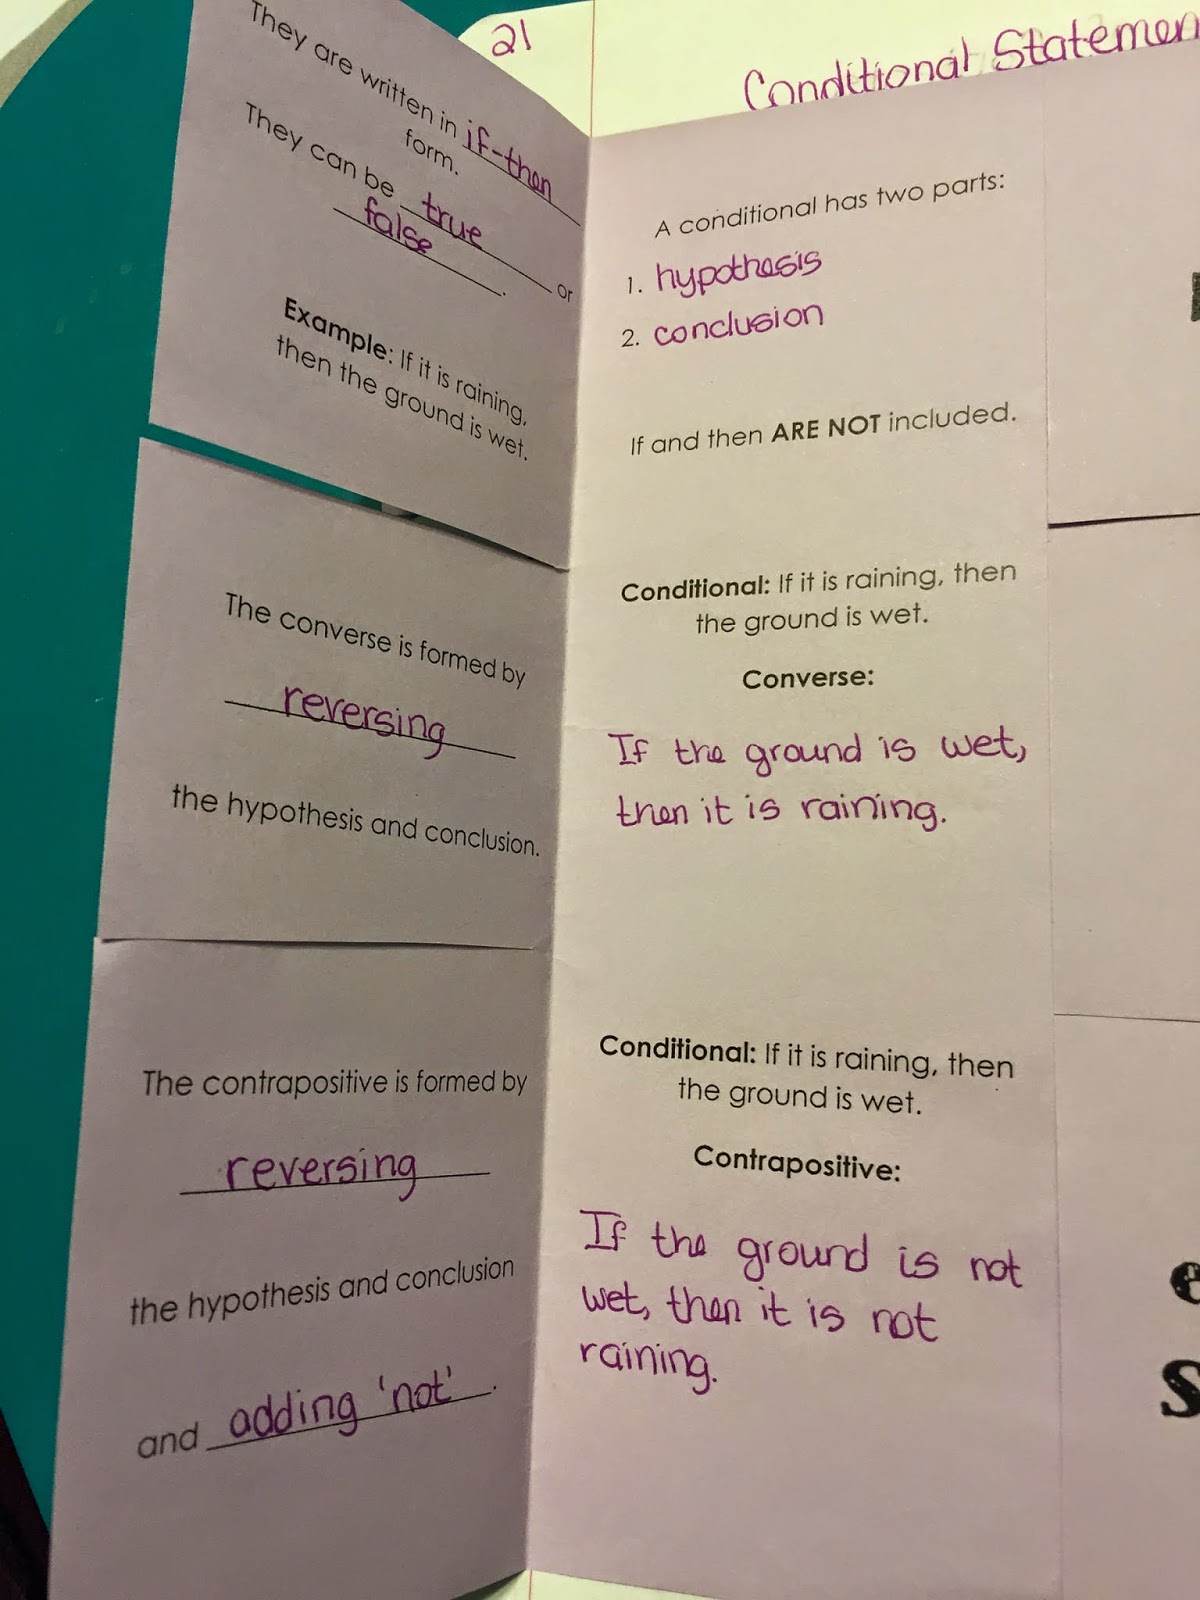 21
Conditional Statemen
They are written in if-then
form.
They can be true or
false.
Example: If it is raining,
then the ground is wet.
A conditional has two parts:
1. hypothesis
2. conclusion
If and then ARE NOT included.
The converse is formed by
reversing
the hypothesis and conclusion.
Conditional: If it is raining, then
the ground is wet.
Converse:
If the ground is wet,
then it is raining.
The contrapositive is formed by
reversing
the hypothesis and conclusion
and adding 'not'.
Conditional: If it is raining, then
the ground is wet.
Contrapositive:
If the ground is not
wet, then it is not
raining.